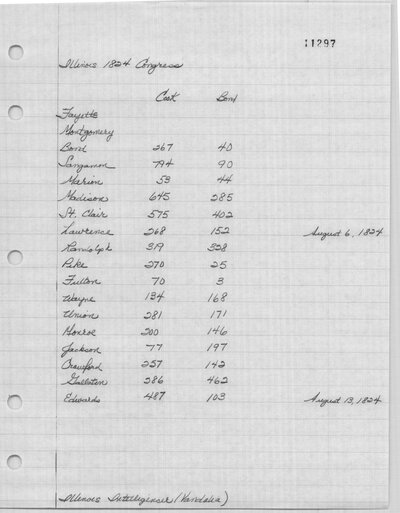 11297
Illinois 1824 Congress
Cook Bond
Fayette
Montgomery
Bond 267 40
Sangamon 794 90
Marion 53 44
Madison 645 285
St. Clair 575 402
Lawrence 268 152 August 6, 1824
Randolph 319 328
Pike 270 25
Fulton 70 3
Wayne 134 168
Union 281 171
Monroe 200 146
Jackson 77 197
Crawford 257 142
Gallatin 286 462
Edwards 487 103 August 13, 1824
Illinois Intelligencer (Vandalia)